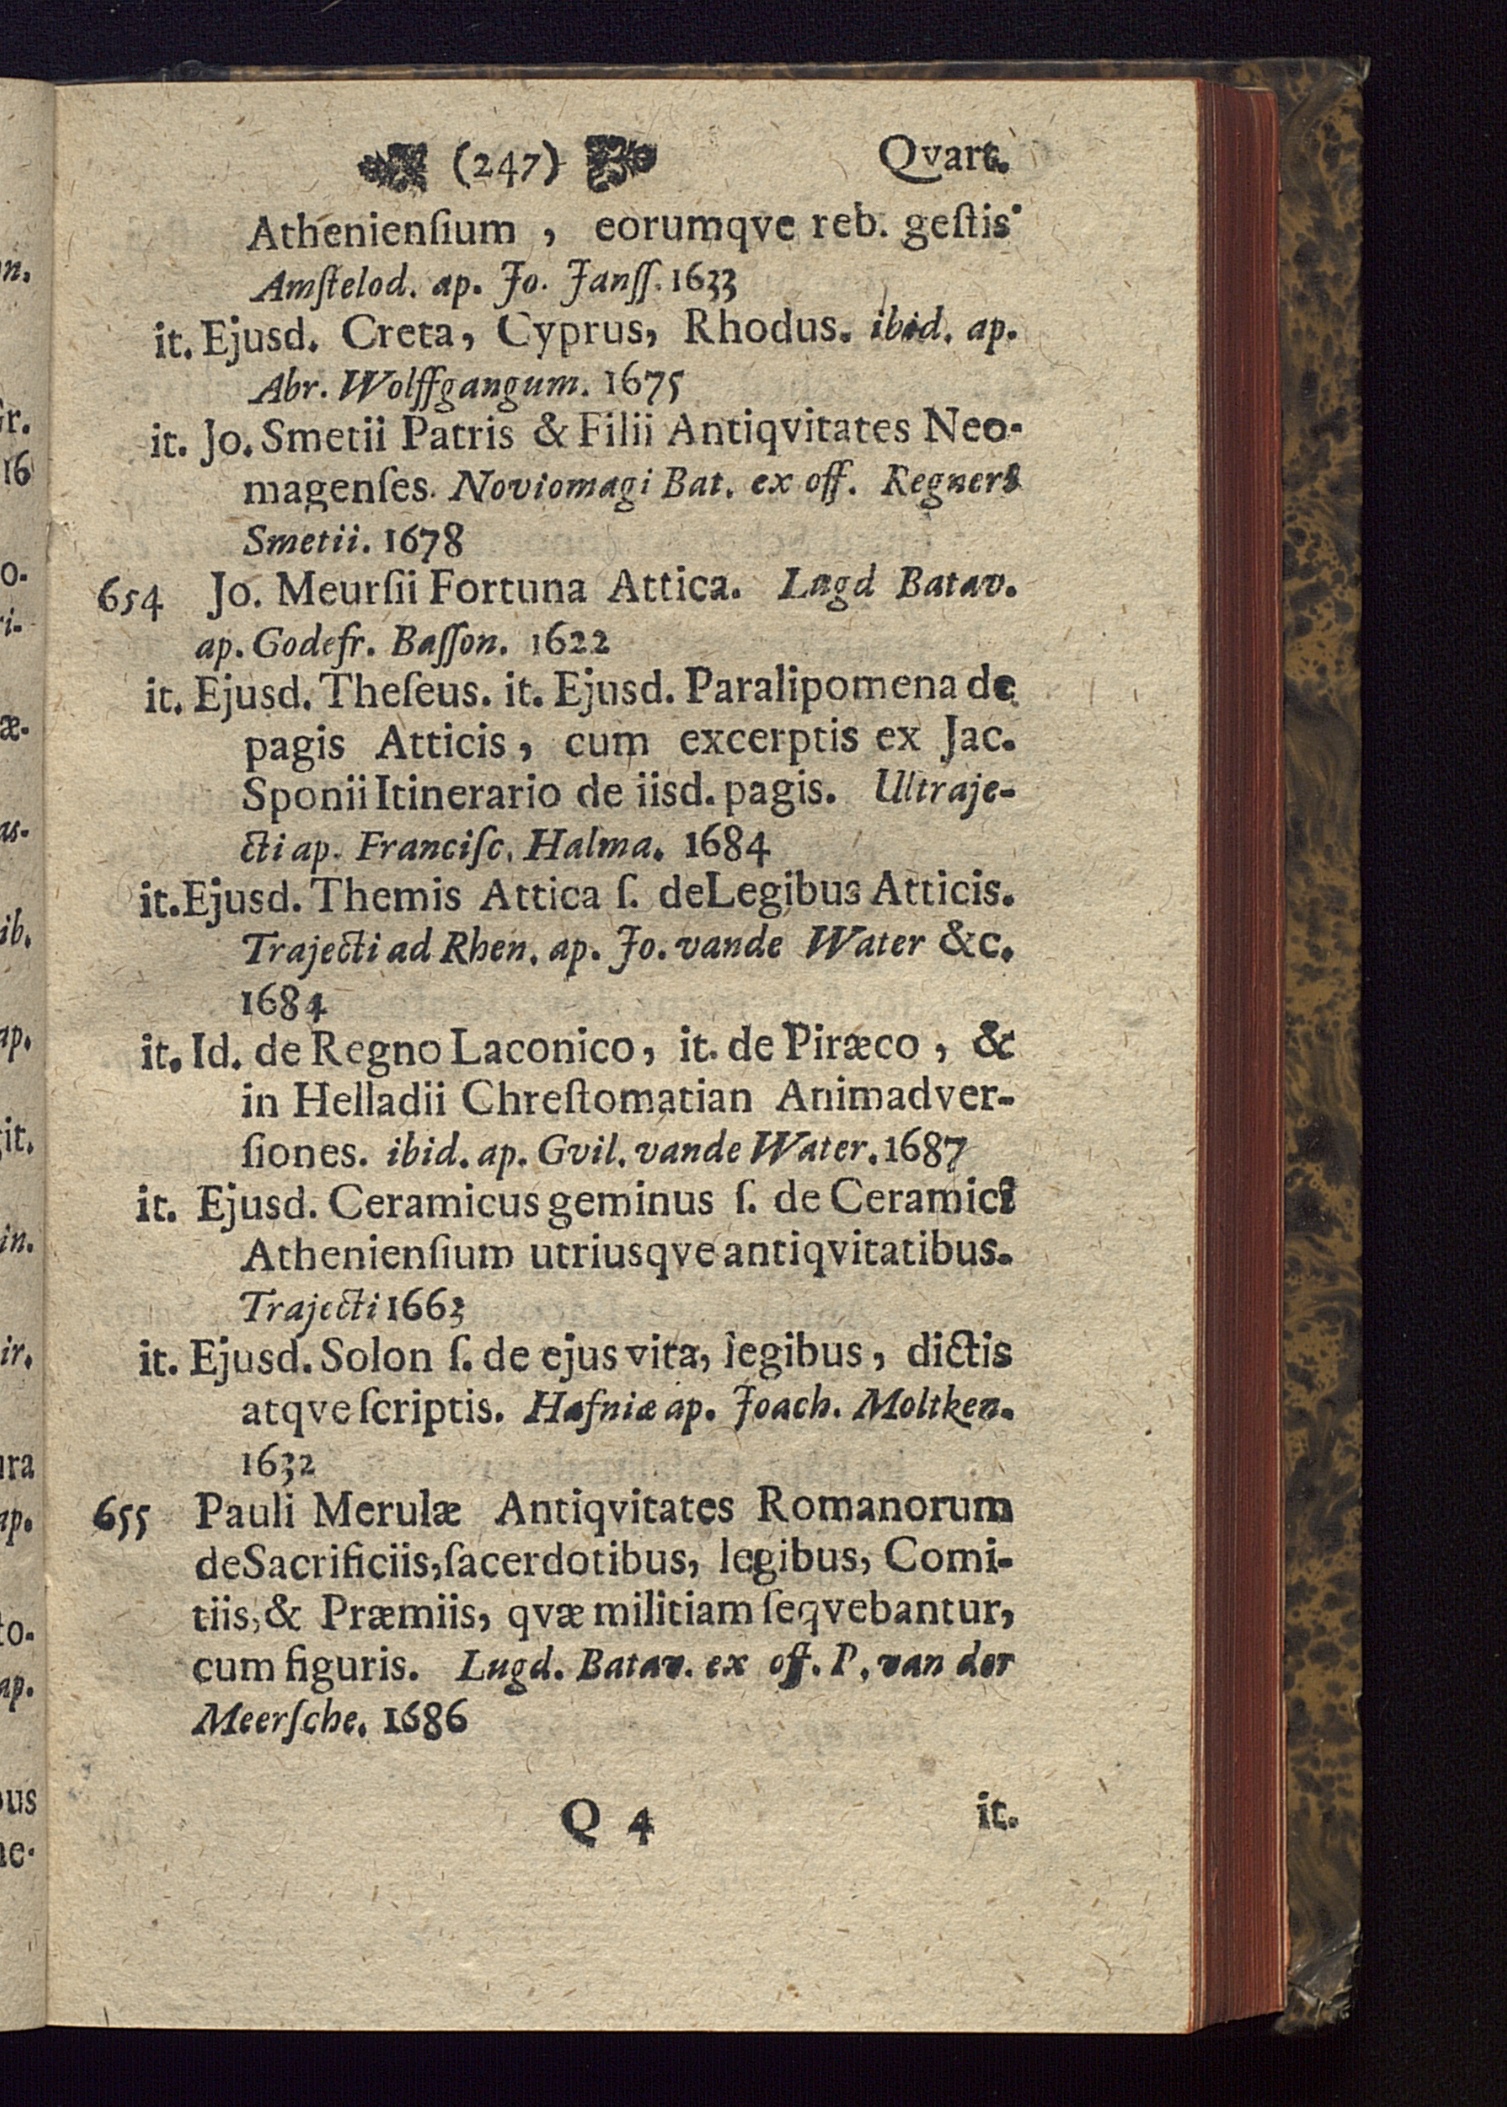 (247) Qvart.
Athenienſium , eorumqve reb. geſtis.
Amſtelod. ap. Jo. Janſſ. 1633
it. Ejusd. Creta, Cyprus, Rhodus. ibid. ap.
Abr. Wolffgangum. 1675
it. Jo. Smetii Patris & Filii Antiqvitates Neo-
magenſes. Noviomagi Bat. ex off. Regneri
Smetii. 1678
654 Jo. Meurſii Fortuna Attica. Lugd Batav.
ap. Godefr. Baſſon. 1622
it. Ejusd. Theſeus. it. Ejusd. Paralipomena de
pagis Atticis, cum excerptis ex Jac.
Sponii Itinerario de iisd. pagis. Ultraje-
cti ap. Franciſc. Halma. 1684
it. Ejusd. Themis Attica ſ. de Legibus Atticis.
Trajecti ad Rhen. ap. Jo. vande Water &c.
1684
it. Id. de Regno Laconico, it. de Piræeo , &
in Helladii Chreſtomatian Animadver-
ſiones. ibid. ap. Gvil. vande Water. 1687
it. Ejusd. Ceramicus geminus ſ. de Ceramici
Athenienſium utriusqve antiqvitatibus.
Trajecti 1663
it. Ejusd. Solon ſ. de ejus vita, legibus, dictis
atqve ſcriptis. Hafniæ ap. Joach. Moltken.
1632
655 Pauli Merulæ Antiqvitates Romanorum
de Sacrificiis, ſacerdotibus, legibus, Comi-
tiis, & Præmiis, qvæ militiam ſeqvebantur,
cum figuris. Lugd. Batav. ex off. P. van der
Meerſche. 1686
Q 4 it.